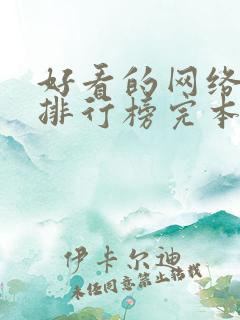 好看的网络
排行榜完本
伊卡尔迪
未经同意禁止转载